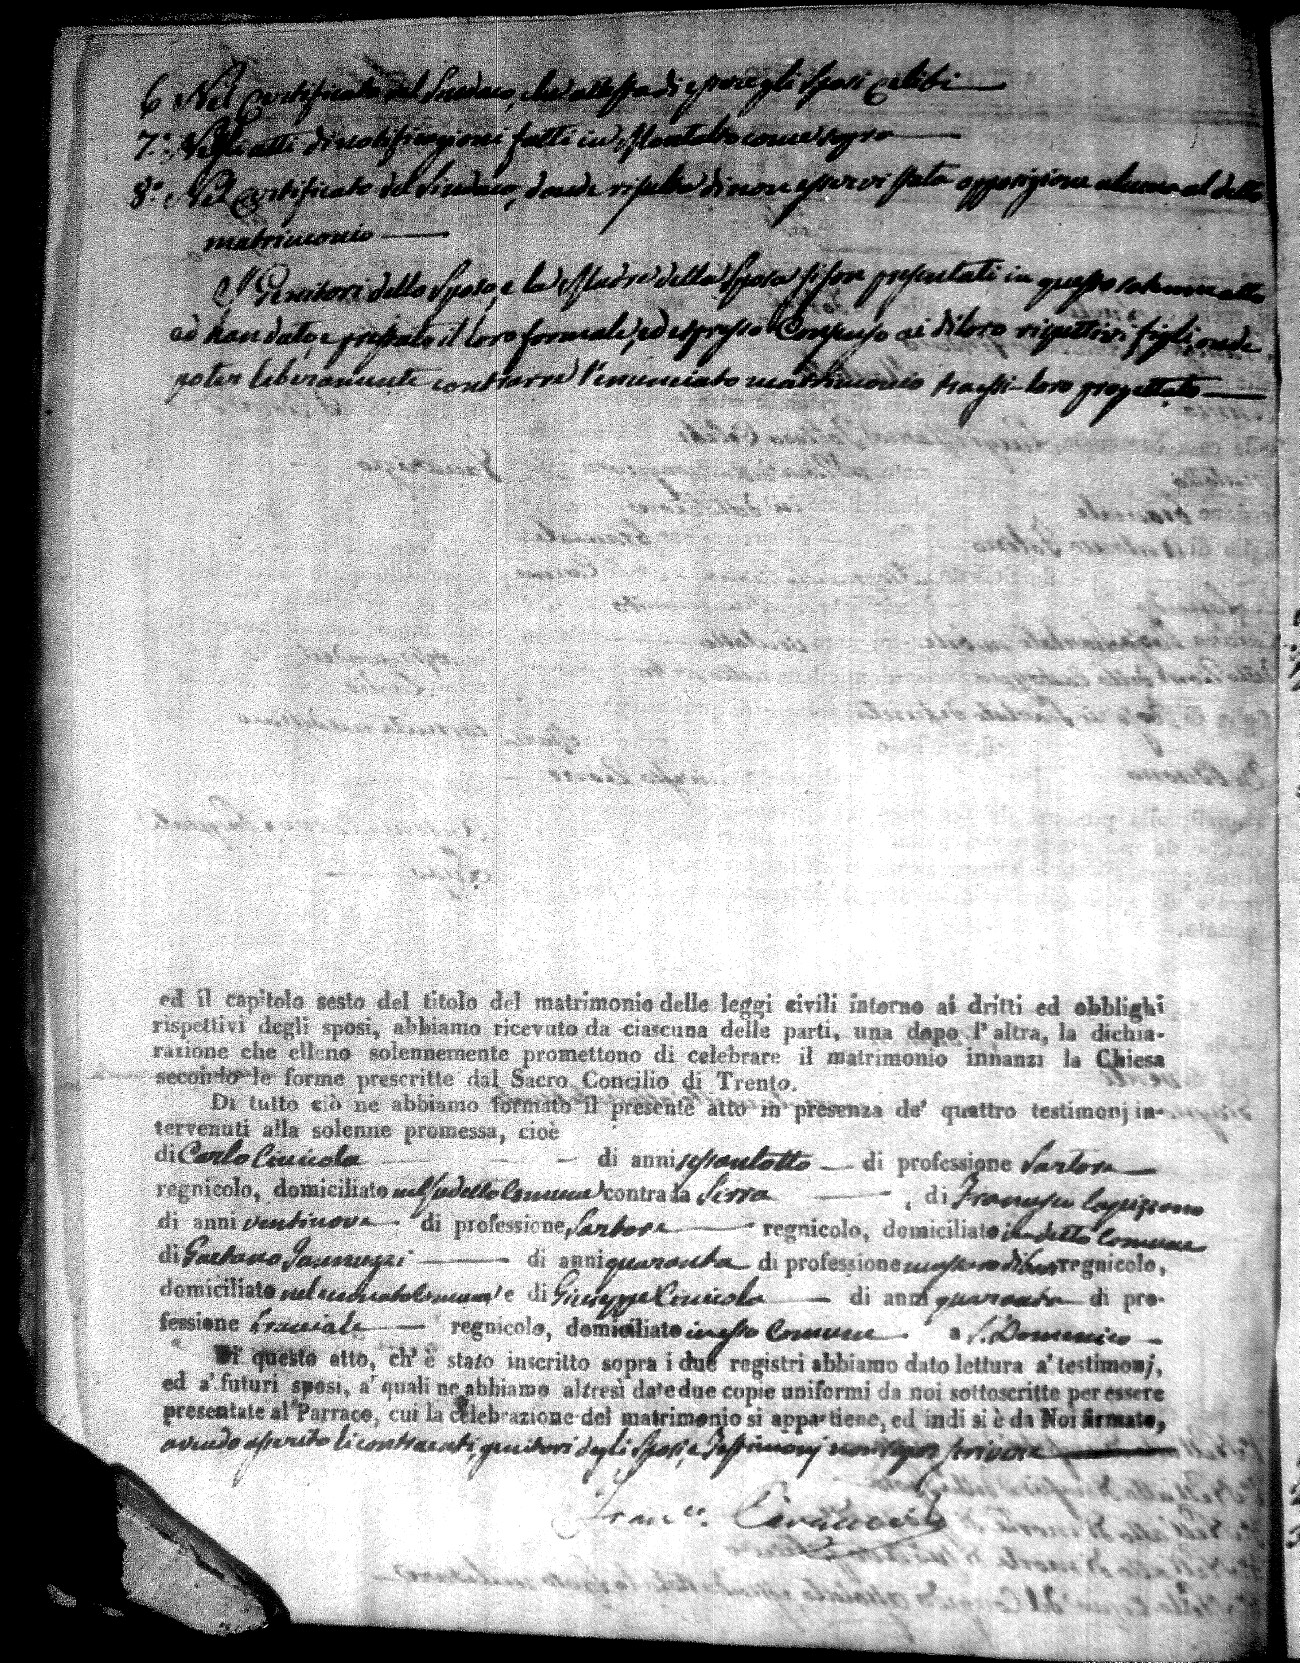 6 Nel Certificato del Sindaco, che attesta di essere gli Sposi celibi
7.° Negli atti di notificazioni fatti in Montalto come sopra
8.° Nel Certificato del Sindaco, donde risulta di non esservi stata opposizione alcuna al detto
matrimonio
I Genitori dello Sposo, e la Madre della Sposa si son presentati in questo solenne atto
ed han dato, e prestato il loro formale, ed espresso Consenso ai di loro rispettivi figli onde
poter liberamente contrarre l'enunciato matrimonio tra essi-loro progettato
ed il capitolo sesto del titolo del matrimonio delle leggi civili intorno ai dritti ed obblighi
rispettivi degli sposi, abbiamo ricevuto da ciascuna delle parti, una dopo l'altra, la dichia-
razione che elleno solennemente promettono di celebrare il matrimonio innanzi la Chiesa
secondo le forme prescritte dal Sacro Concilio di Trento.
Di tutto ciò ne abbiamo formato il presente atto in presenza de' quattro testimonj in-
tervenuti alla solenne promessa, cioè
di Carlo di anni sessantotto di professione Sartore
regnicolo, domiciliato nel sudetto Comune contrada Serra , di Francesco
di anni ventinove di professione Sartore regnicolo, domiciliato in detto Comune
di Gaetano Iannuzzi di anni quaranta di professione regnicolo,
domiciliato nel Comune e di Giuseppe di anni quaranta di pro-
fessione bracciale regnicolo, domiciliato in esso Comune a S. Domenico
Di questo atto, ch' è stato inscritto sopra i due registri abbiamo dato lettura a' testimonj,
ed a' futuri sposi, a' quali ne abbiamo altresì date due copie uniformi da noi sottoscritte per essere
presentate al Parraco, cui la celebrazione del matrimonio si appartiene, ed indi si è da Noi firmato,
avendo asserito li contraenti, genitori degli Sposi, e Testimonj non saper scrivere
Fran.co